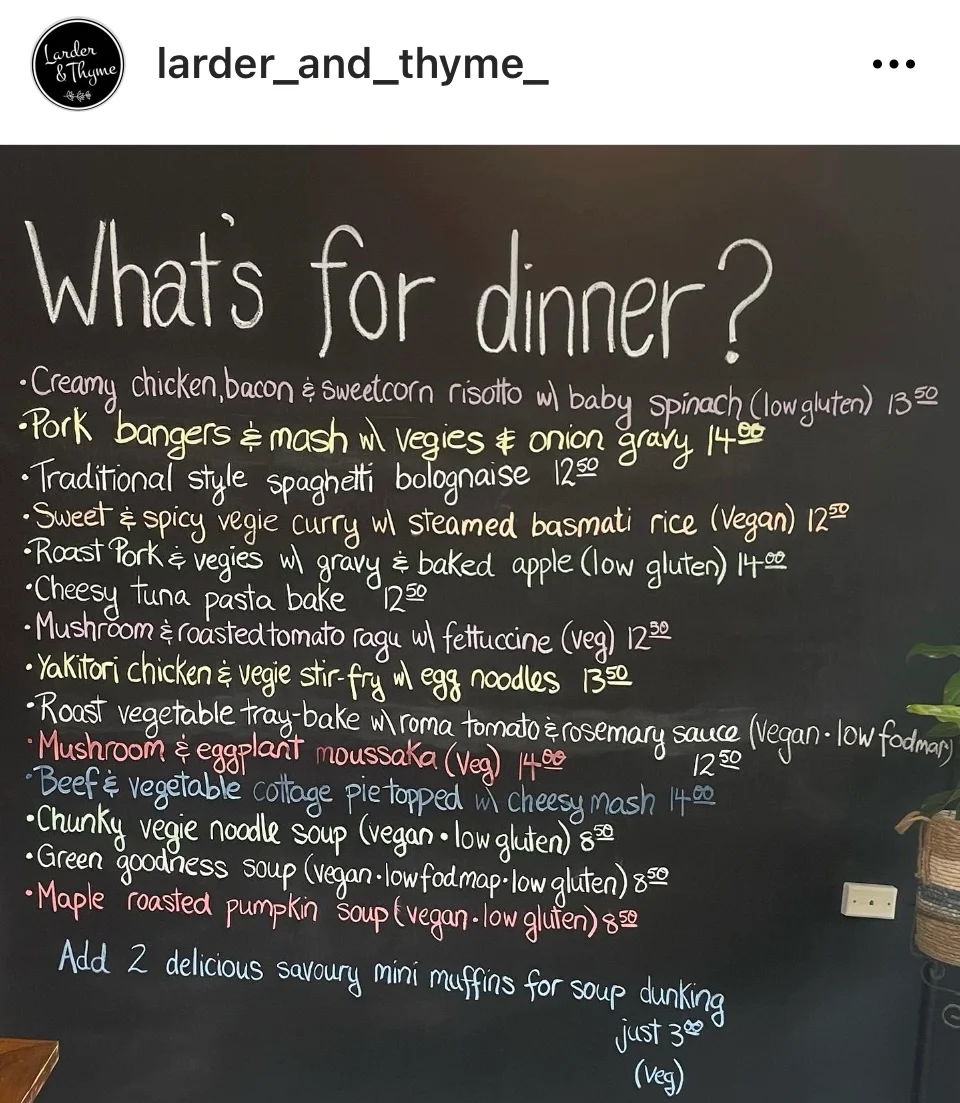 Larder
& Thyme
larder_and_thyme_
What's for dinner?
•Creamy chicken, bacon & sweetcorn risotto w\ baby spinach (low gluten) 13 50
•Pork bangers & mash w\ vegies & onion gravy 14 00
•Traditional style spaghetti bolognaise 12 50
•Sweet & spicy vegie curry w\ steamed basmati rice (Vegan) 12 50
•Roast Pork & vegies w\ gravy & baked apple (low gluten) 14 00
•Cheesy tuna pasta bake 12 50
•Mushroom & roasted tomato ragu w\ fettuccine (veg) 12 50
•Yakitori chicken & vegie stir-fry w\ egg noodles 13 50
•Roast vegetable tray-bake w\ roma tomato & rosemary sauce (vegan • low fodmap)
12 50
•Mushroom & eggplant moussaka (Veg) 14 00
•Beef & vegetable cottage pie topped w\ cheesy mash 14 00
•Chunky vegie noodle soup (vegan • low gluten) 8 50
•Green goodness soup (vegan • low fodmap • low gluten) 8 50
•Maple roasted pumpkin soup (vegan • low gluten) 8 50
Add 2 delicious savoury mini muffins for soup dunking
just 3 00
(veg)